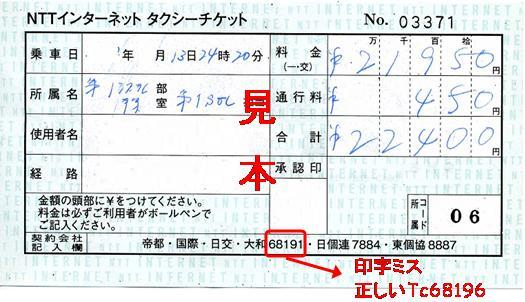 NTTインターネット タクシーチケット No. 03371
乗車日 年 月 13日24時20分
料金 (一・交) 万 千 百 拾 ¥21950円
所属名 部 室
通行料 ¥ 450円
使用者名
合計 ¥22400円
経路
承認印
見本
金額の頭部に¥をつけてください。
料金は必ずご利用者がボールペンで
ご記入ください。
所属コード 06
契約会社記入欄 帝都・国際・日交・大和68191・日個連7884・東個協8887
印字ミス
正しいTc68196